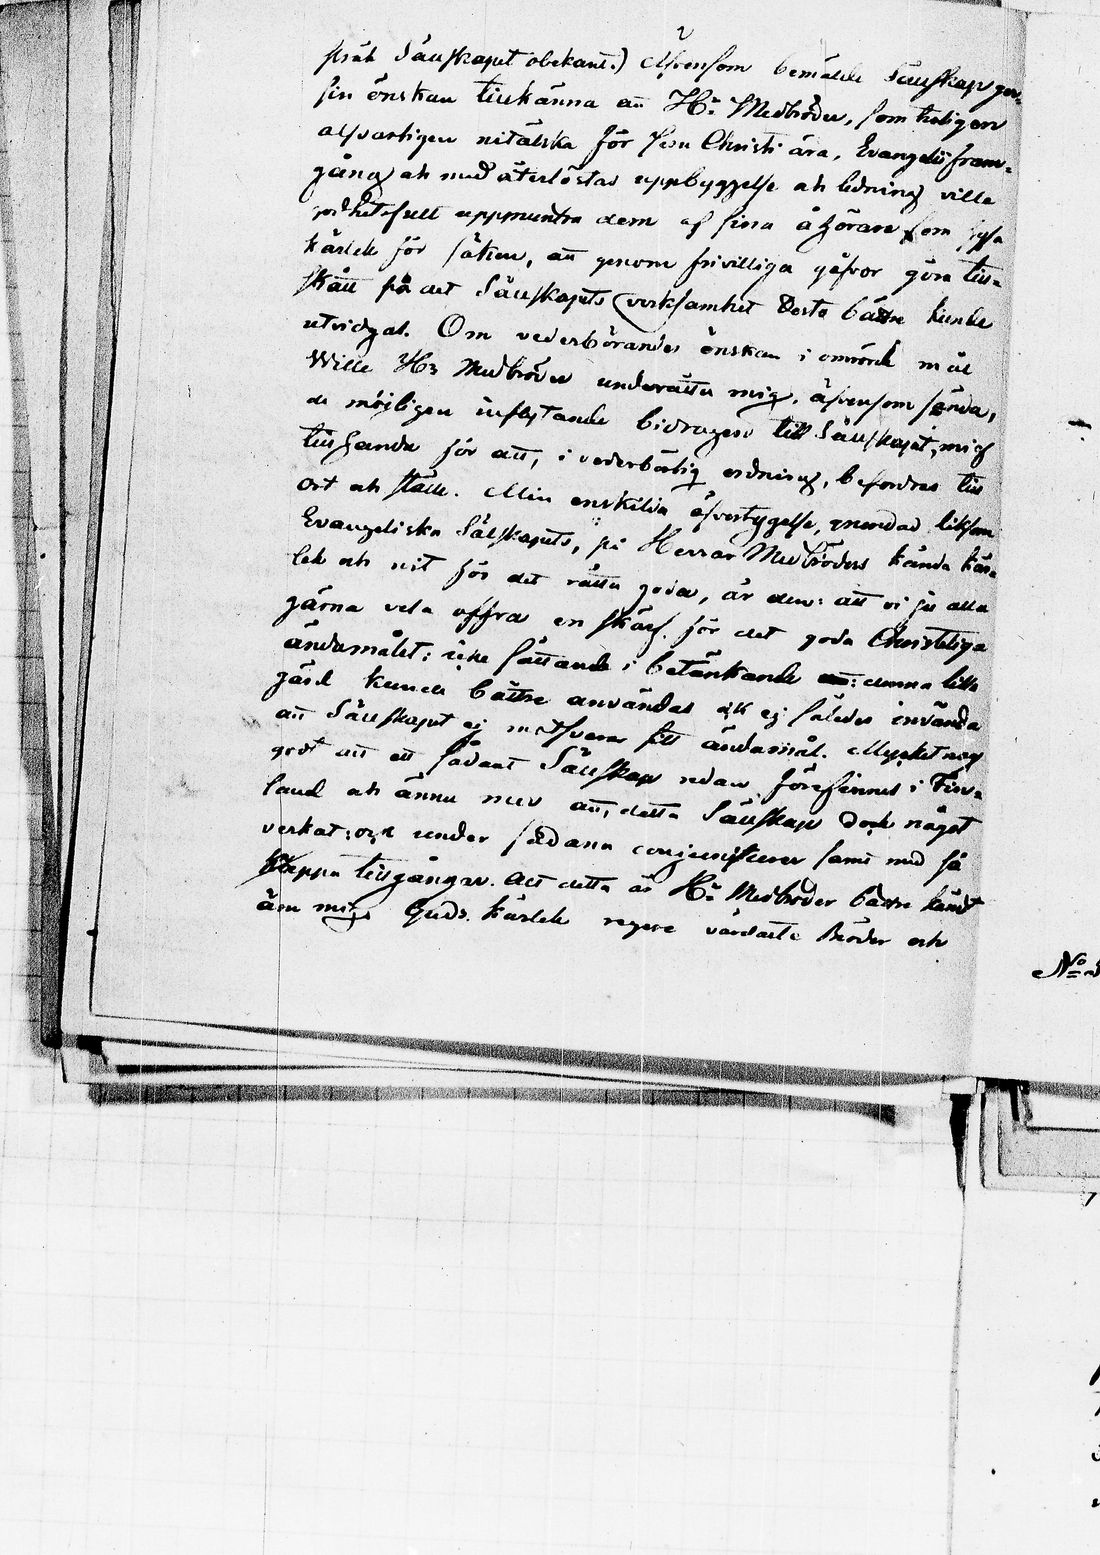 språk Sällskapet obekant.) Äfvensom bemälde Sällskap ger
sin önskan tillkänna att Hr Medbröder, som troligen
alfvarligen nitälska för Jesu Christi ära, Evangelii fram-
gång och med återlöstas uppbyggelse och ledning ville
godhetsfullt uppmuntra dem af sina åhörare som hysa
kärlek för saken, att genom frivilliga gåfvor göra till-
skått på det Sällskapets verksamhet desto bättre kunde
utvidgas. Om vederbörandes önskan i omrörde mål
Wille Hrr Medbröder underrätta mig, äfvensom sända,
de möjligen inflytande bidragen till Sällskapet, mig
tillhanda för att, i vederbörlig ordning, befordras till
ort och ställe. Min enskilda öfvertygelse, grundad liksom
Evangeliska Sälskapets, på Herrar Medbröders kända kär-
lek och nit för det rätta goda, är den: att vi ju alla
gärna vela offra en skärf för det goda Christeliga
ändamålet: icke sättande i betänkande att: denna lilla
gärd kunde bättre användas och ej således invända
att Sällskapet ej motsvarar sitt ändamål. Mycket nog
godt att ett sådant Sällskap redan förefinnes i Finn-
land och ännu mer att, detta Sällskap dock något
verkat: och under sådana conjunkturer samt med så
knappa tillgångar. Allt detta är Hr Medbröder bättre kändt
än mig. Guds kärlek regere värdaste Bröder och
No